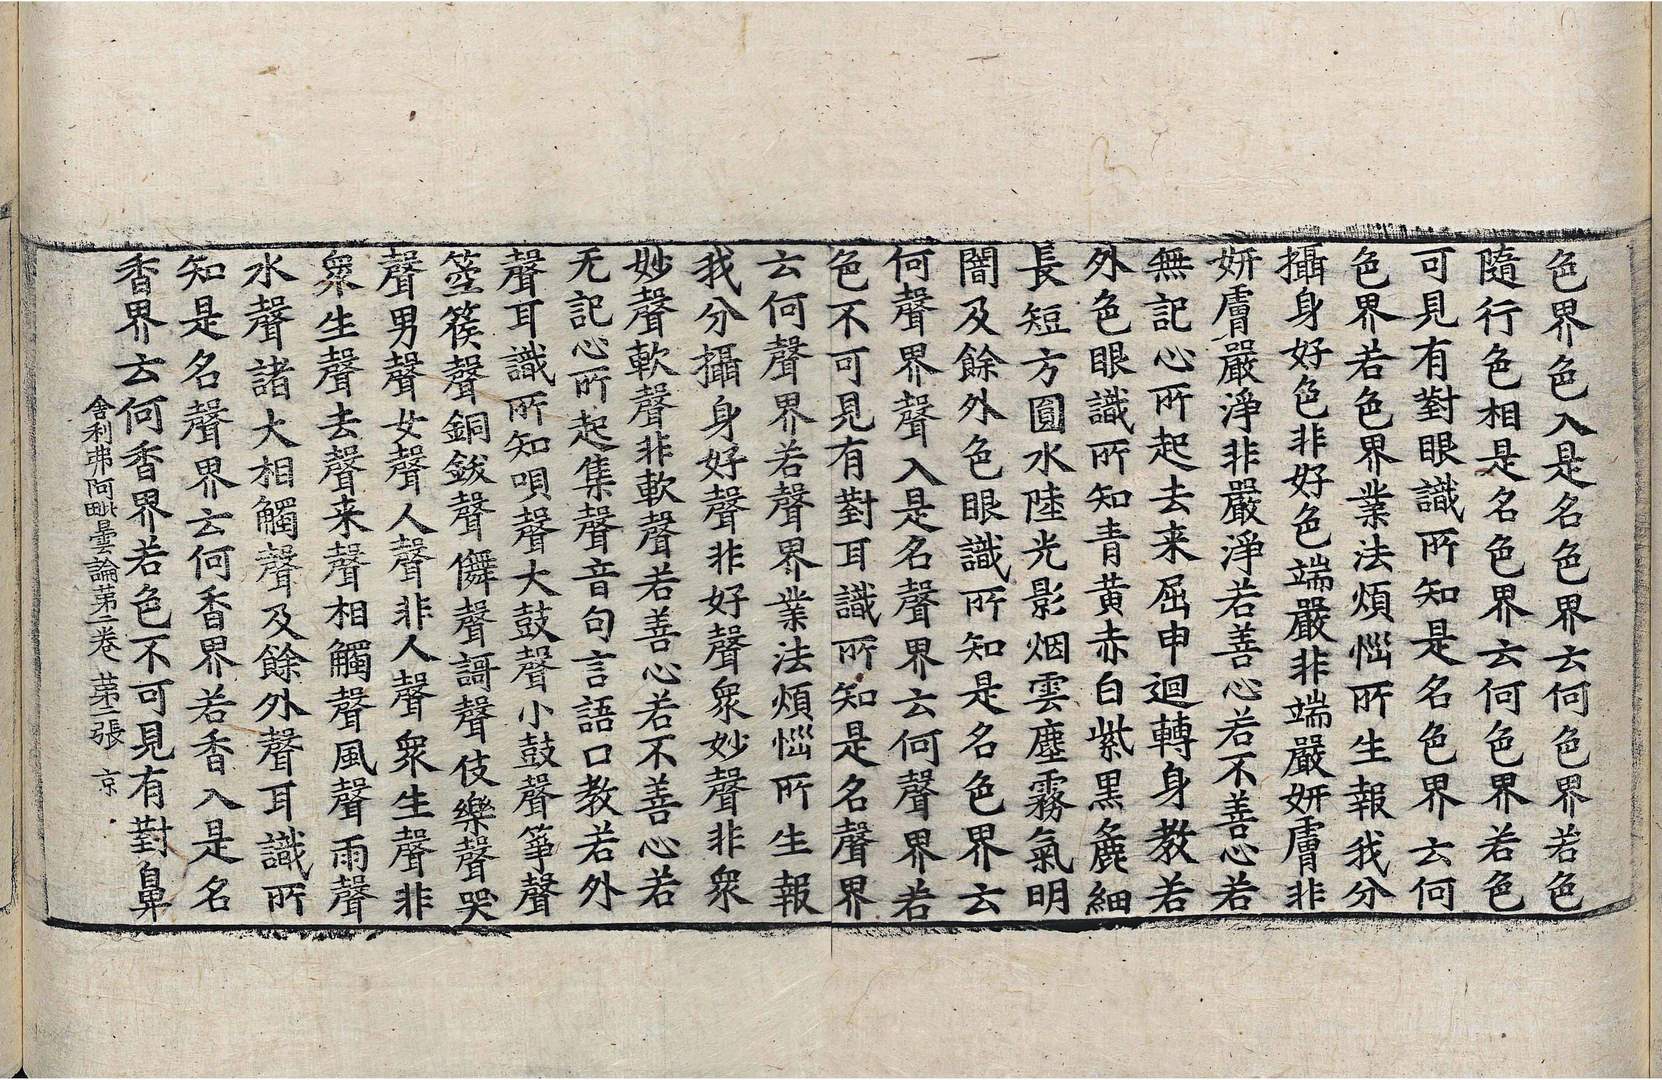 色界色入是名色界云何色界若色
隨行色相是名色界云何色界若色
可見有對眼識所知是名色界云何
色界若色界業法煩惱所生報我分
攝身好色非好色端嚴非端嚴妍膚非
妍膚嚴淨非嚴淨若善心若不善心若
無記心所起去来屈申迴轉身教若
外色眼識所知青黃赤白紫黑麁細
長短方圓水陸光影烟雲塵霧氣明
闇及餘外色眼識所知是名色界云
何聲界聲入是名聲界云何聲界若
色不可見有對耳識所知是名聲界
云何聲界若聲界業法煩惱所生報
我分攝身好聲非好聲衆妙聲非衆
妙聲軟聲非軟聲若善心若不善心若
无記心所起集聲音句言語口教若外
聲耳識所知唄聲大鼓聲小鼓聲箏聲
箜篌聲銅鈸聲儛聲謌聲伎樂聲哭
聲男聲女聲人聲非人聲衆生聲非
衆生聲去聲来聲相觸聲風聲雨聲
水聲諸大相觸聲及餘外聲耳識所
知是名聲界云何香界若香入是名
香界云何香界若色不可見有對鼻
舍利弗阿毗曇論第二卷 第二張 京